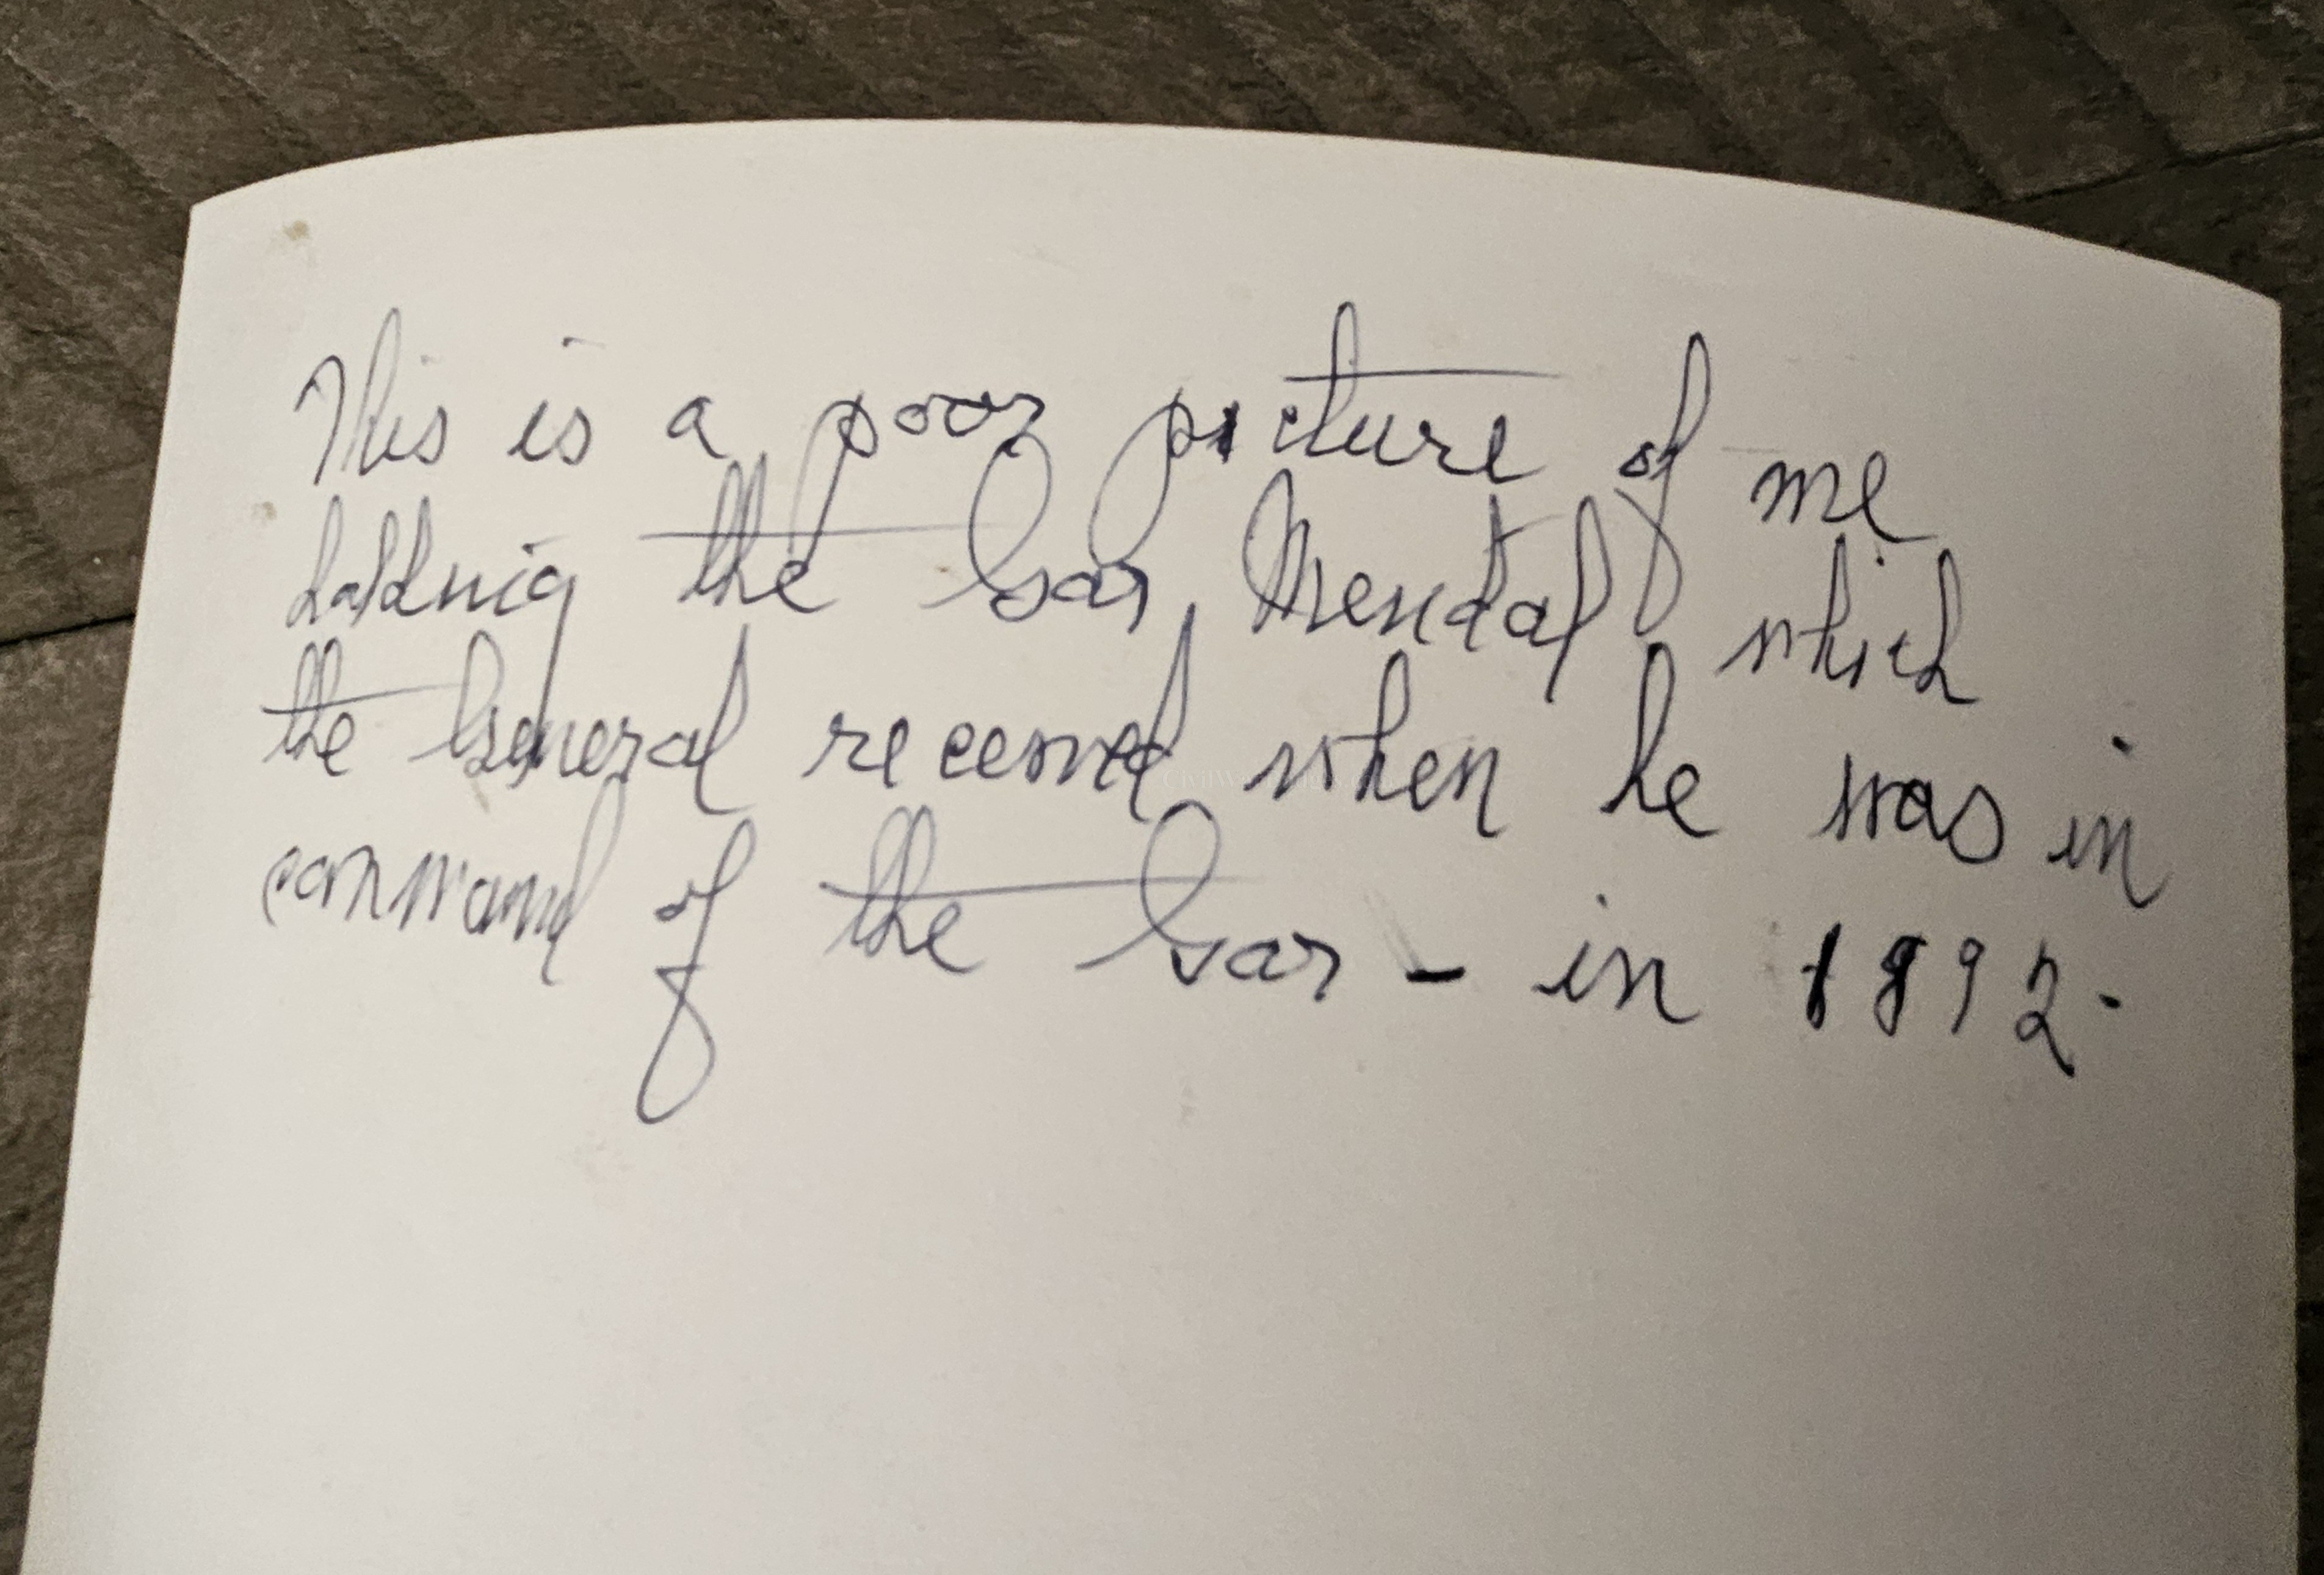 This is a poor picture of me
holding the Gar Mendal which
the General received when he was in
command of the Gar - in 1892.